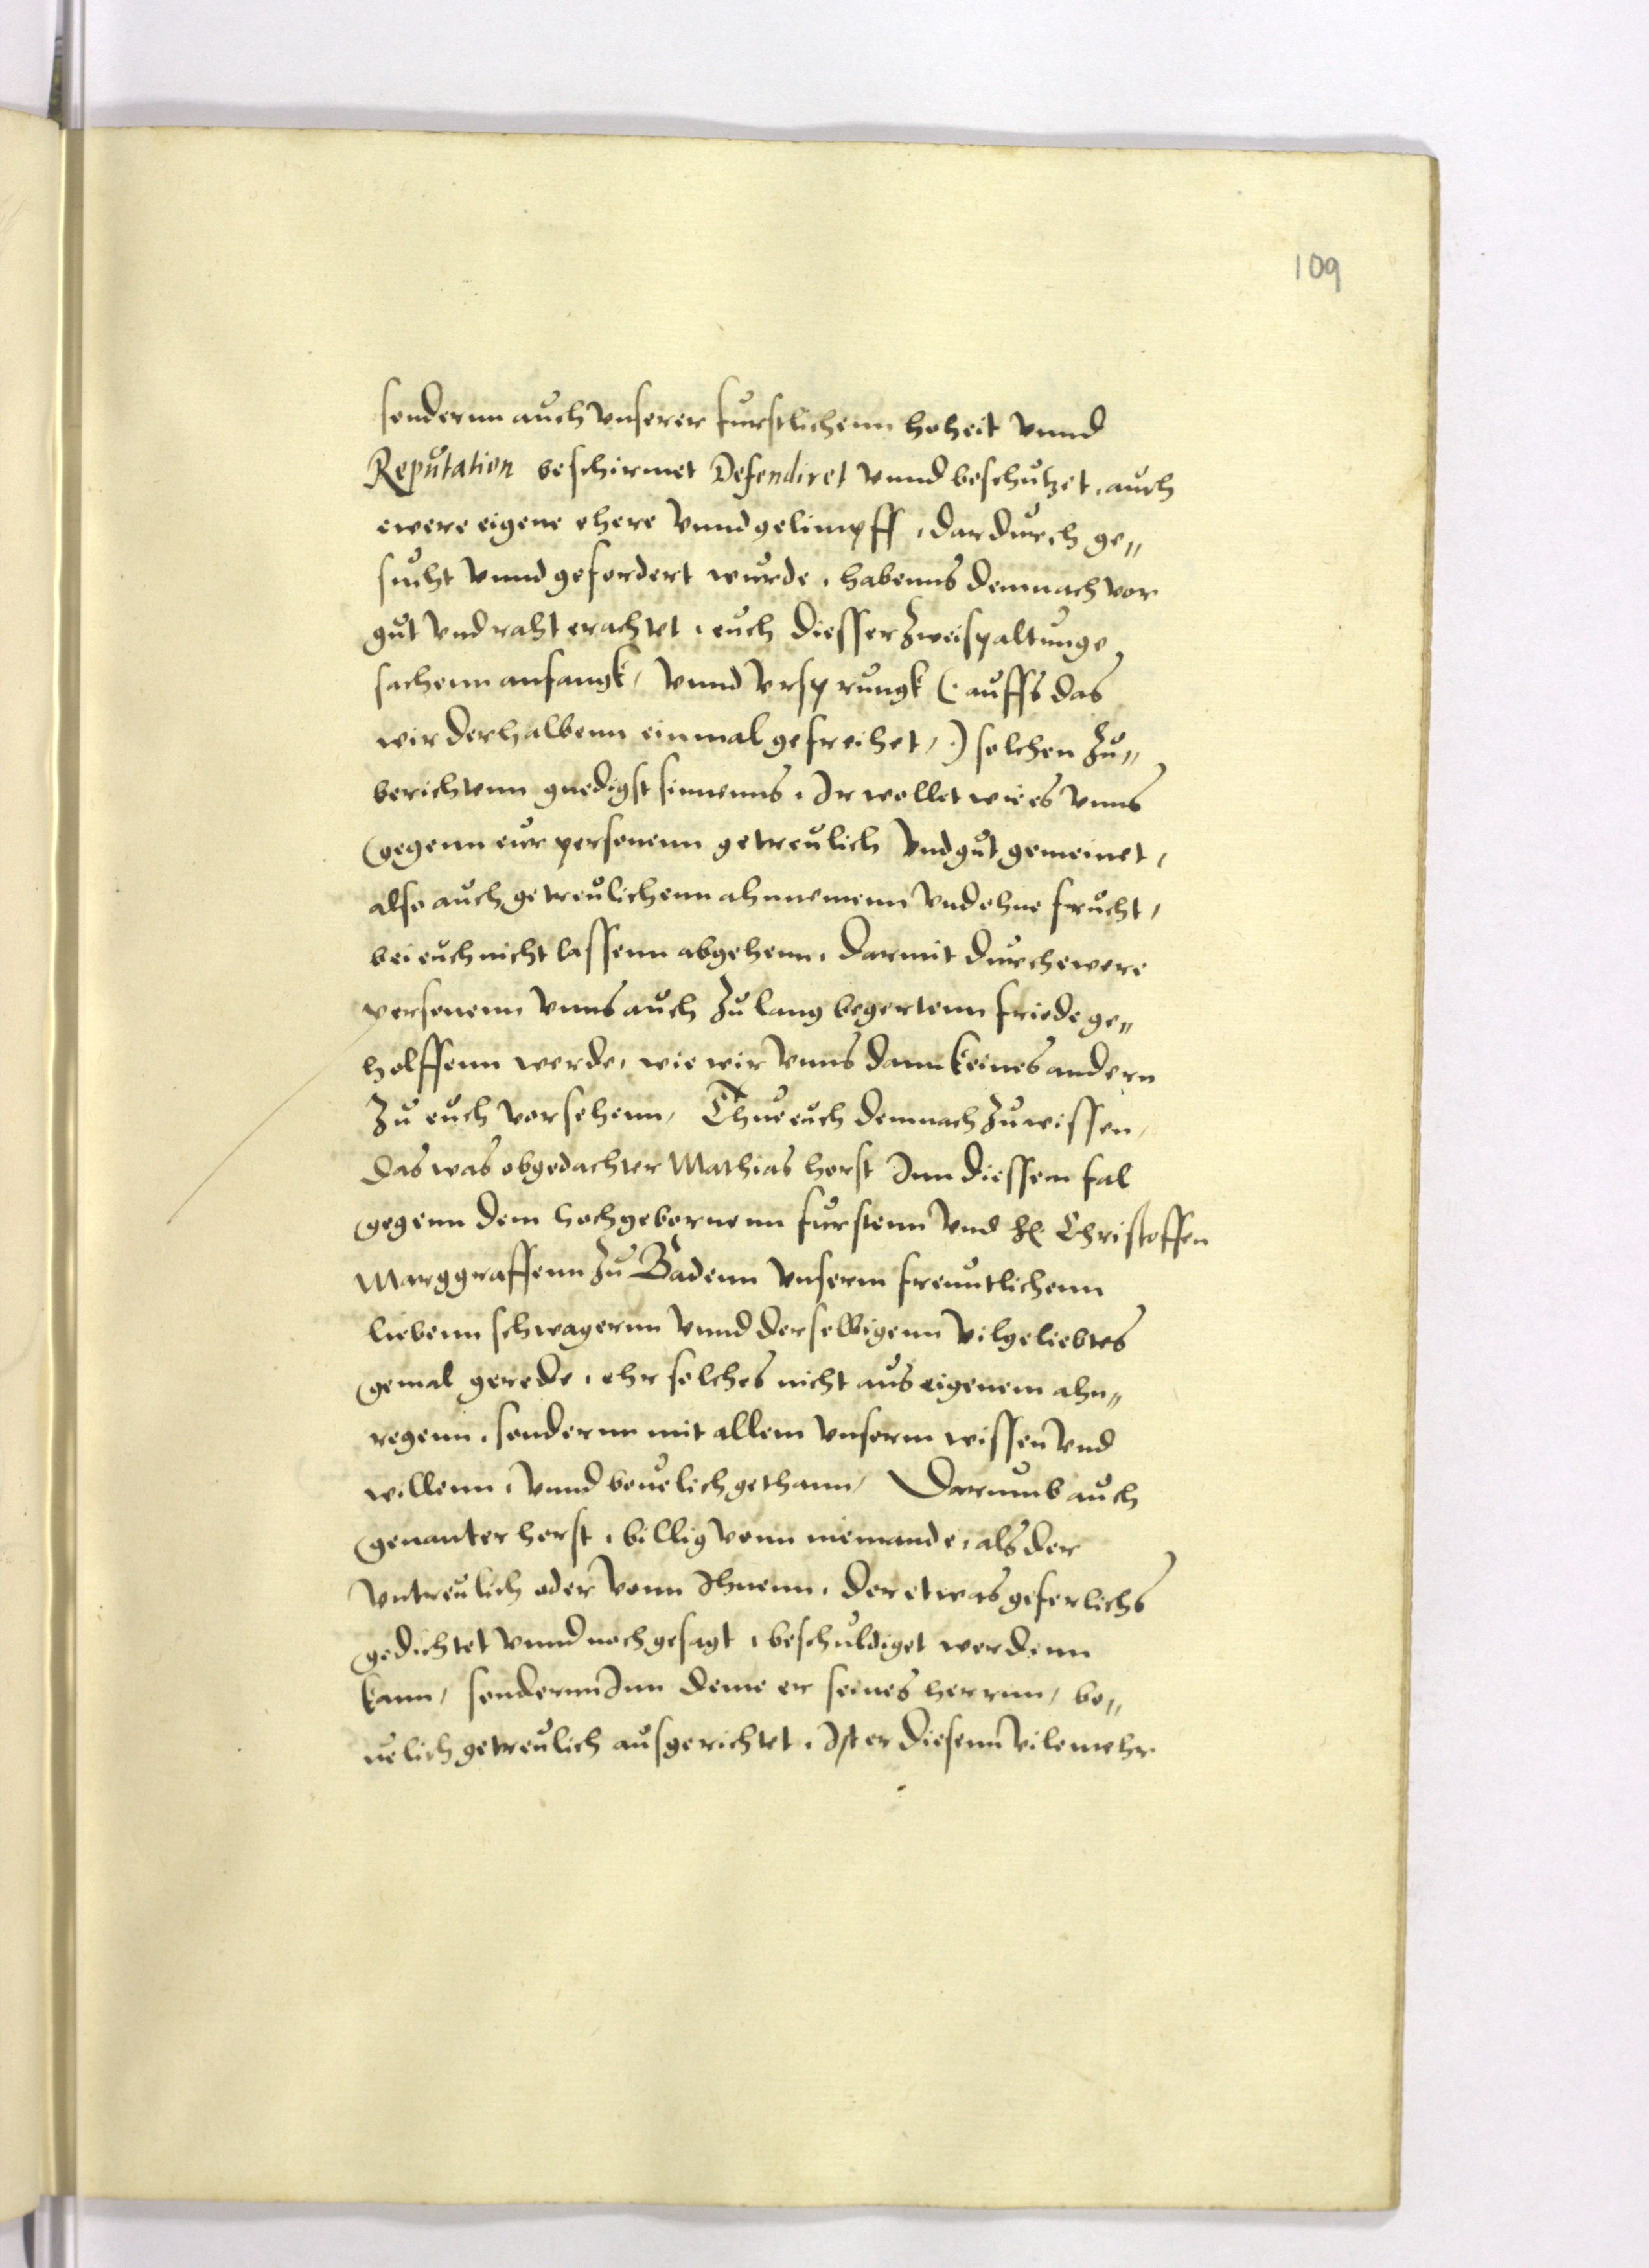 109
sondernn auch vnserer furstlichenn hoheit vnnd
Reputation beschirmet Defendiret vnnd beschutzet, auch
ewere eigene ehere vnnd gelimpff, dardurch ge„
sucht vnnd gefordert wurde, habenns demnach vor
gut vnd raht erachtet, euch diesser zweispaltunge
sachenn anfangk, vnnd vrsprungk (: auffs das
wir derhalbenn einmal gefreihet, :) solchen zu„
berichtenn gnedigst sinnenns, Ir wollet wie es vnns
gegenn eur personenn getreulich vnd gut gemeinet,
also auch getreulichenn ahnnemenn vnd ohne frucht,
bei euch nicht lassenn abgehenn, darmit durch ewere
personenn vnns auch zu lang begertenn friede ge„
holffenn werde, wie wir vnns dann keines andern
zu euch vorsehenn, Thue euch demnach zu wissen,
das was obgedachter Mathias horst Inn diessem fal
gegenn dem hochgebornenn furstenn vnd H. Christoffen
Marggraffenn zu Badenn vnserm freuntlichenn
liebenn schwagernn vnnd derselbigenn vilgeliebtes
gemal gerede, ehr solches nicht aus eigenem ahn„
regenn, sondernn mit allem vnserm wissen vnd
willenn, vnnd beuelich gethann, Darumb auch
genanter horst, billig vonn niemande, als der
vntreulich oder vonn Ihnenn, der etwas geferlichs
gedichtet vnnd nachgesagt, beschuldiget werdenn
kann, sondernn Inn deme er seines herrnn, be„
uelich getreulich ausgerichtet, Ist er diesenn vilemehr